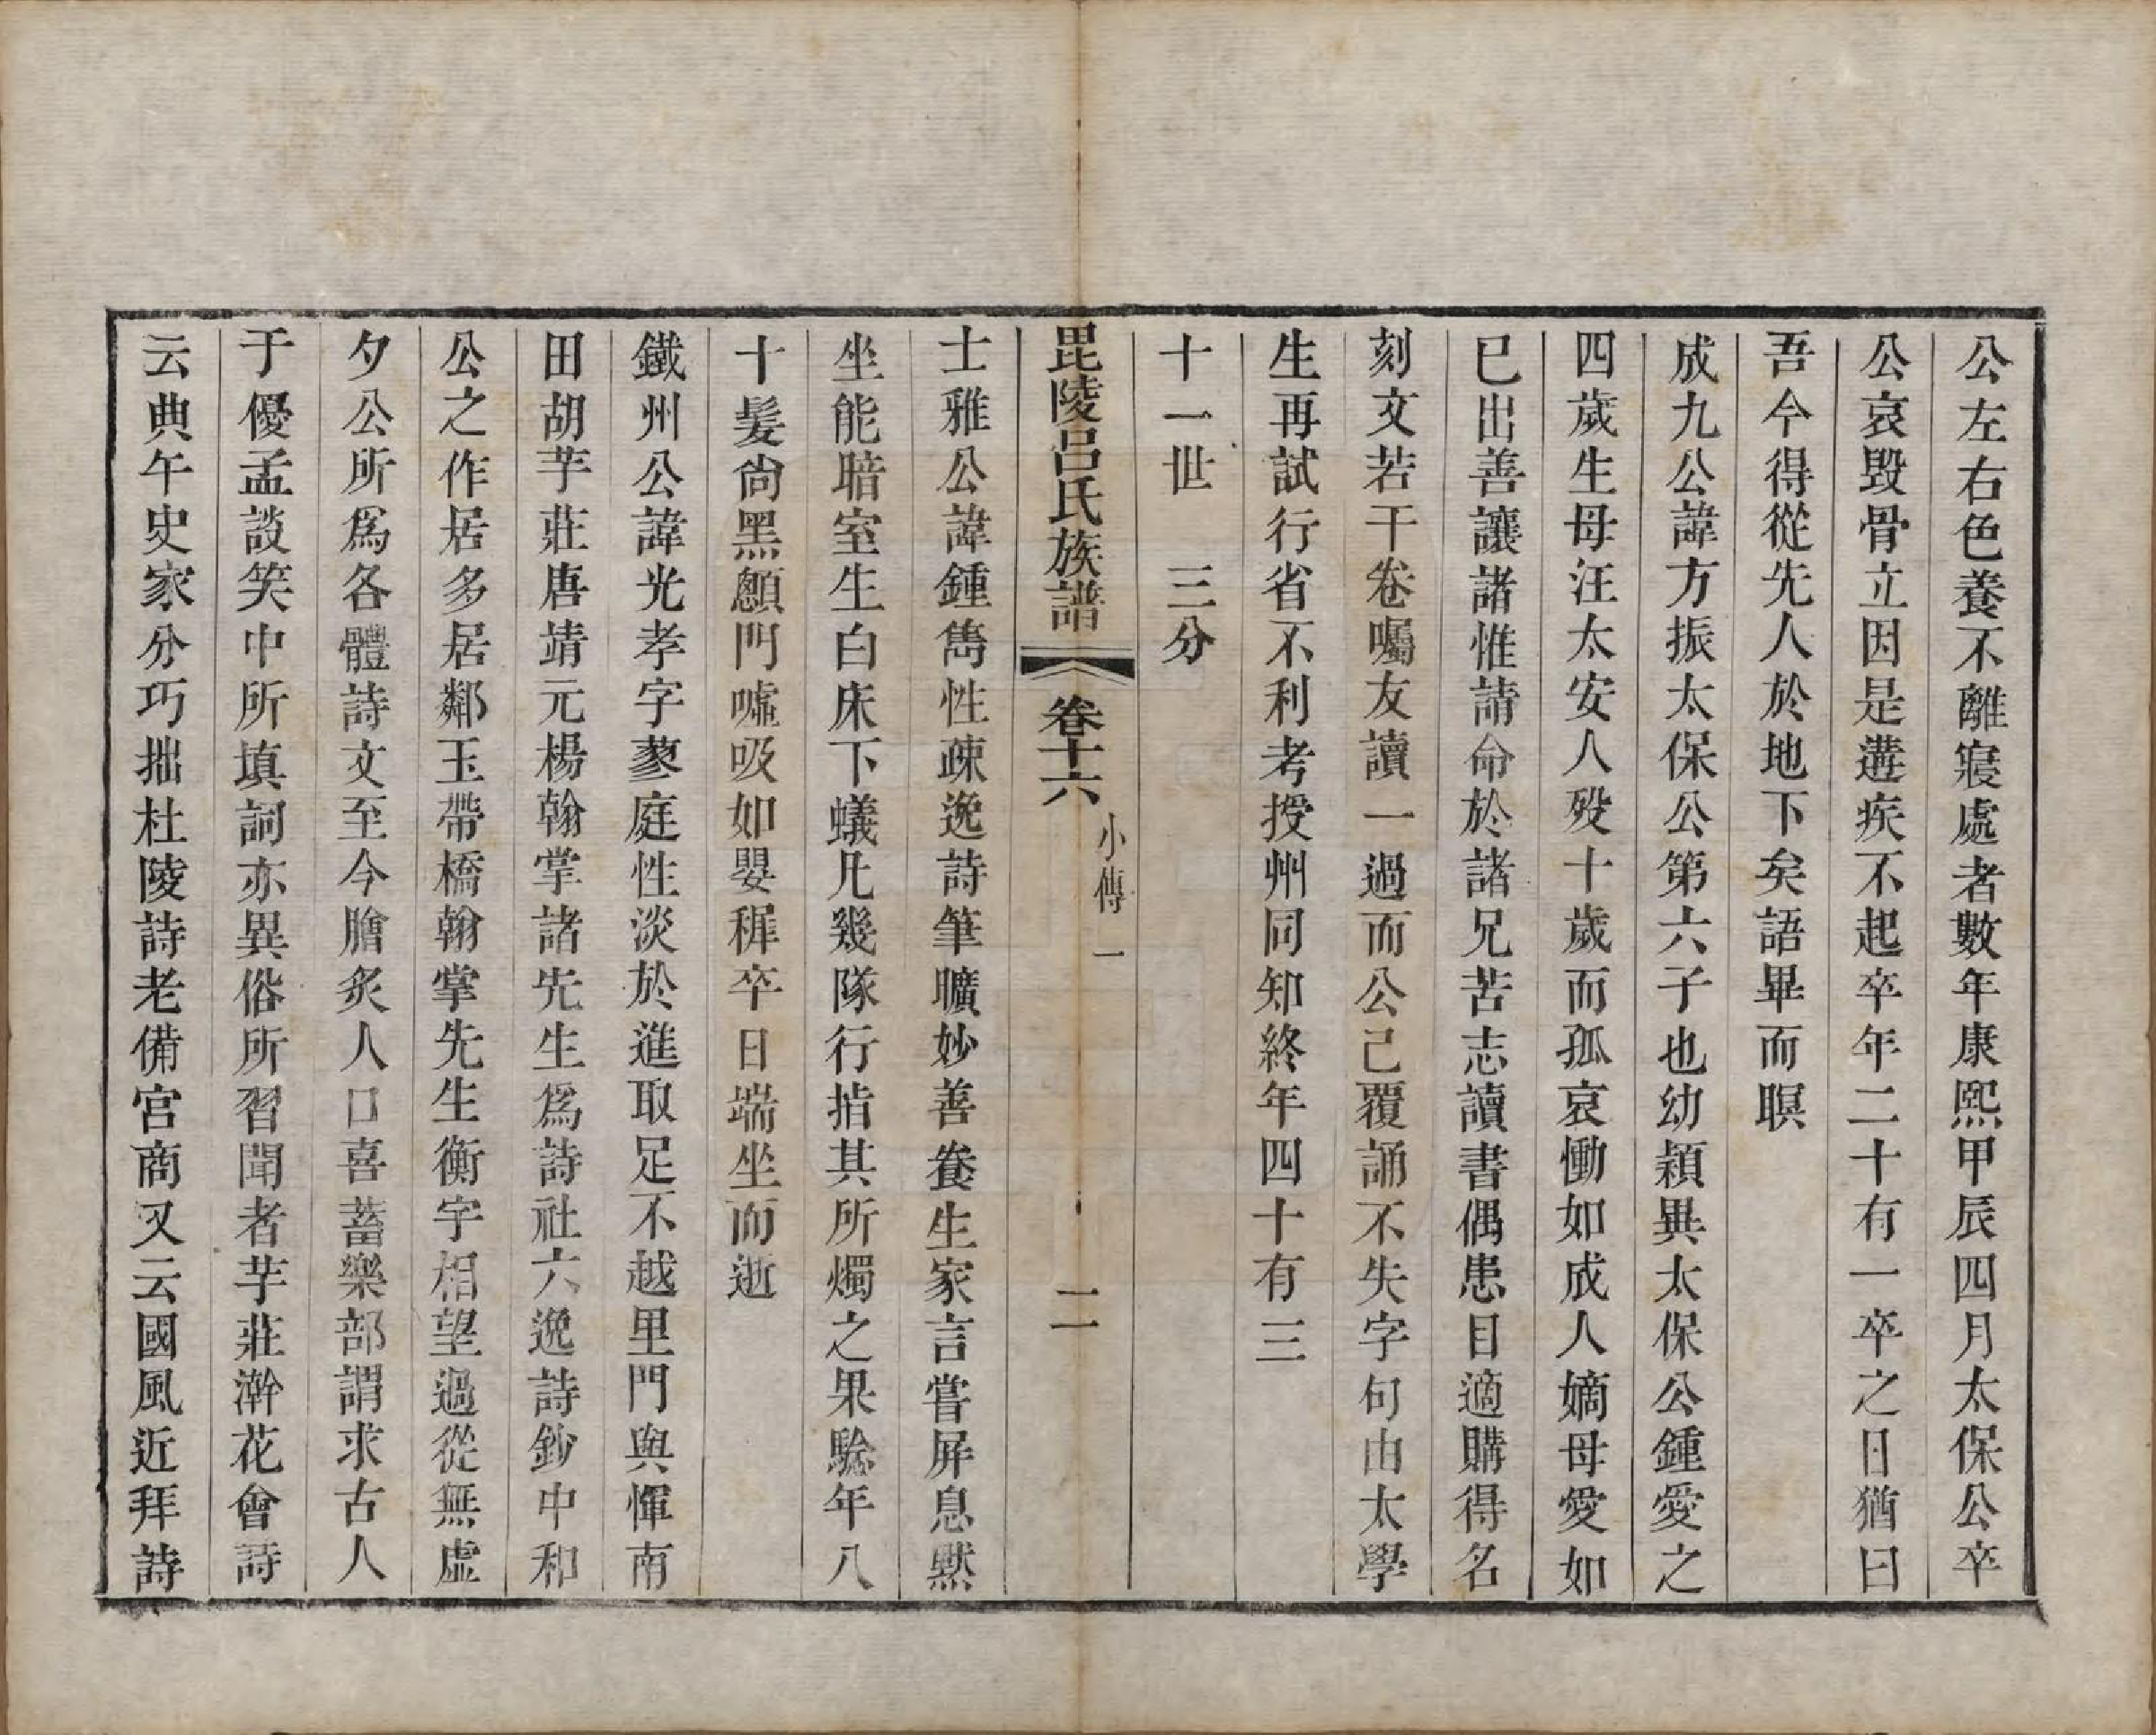 公左右色養不離寢處者數年康熙甲辰四月太保公卒
公哀毀骨立因是遘疾不起卒年二十有一卒之日猶曰
吾今得從先人於地下矣語畢而暝
成九公諱方振太保公第六子也幼穎異太保公鍾愛之
四歲生母汪太安人歿十歲而孤哀慟如成人嫡母愛如
已出善讓諸惟請命於諸兄苦志讀書偶患目適購得名
刻文若干卷囑友讀一過而公已覆誦不失字句由太學
生再試行省不利考授州同知終年四十有三
十一世　三分
毘陵呂氏族譜　卷十六　小傳一　二
士雅公諱鍾雋性疎逸詩筆曠妙善養生家言嘗屏息默
坐能暗室生白床下蟻凡幾隊行指其所燭之果驗年八
十髮尙黑顖門噓吸如嬰穉卒日端坐而逝
鐵州公諱光孝字蓼庭性淡於進取足不越里門與惲南
田胡芋莊唐靖元楊翰掌諸先生爲詩社六逸詩鈔中和
公之作居多居鄰玉帶橋翰掌先生衡宇相望過從無虛
夕公所爲各體詩文至今膾炙人口喜蓄樂部謂求古人
于優孟談笑中所填詞亦異俗所習聞者芋莊澣花會詩
云典午史家分巧拙杜陵詩老備宮商又云國風近拜詩